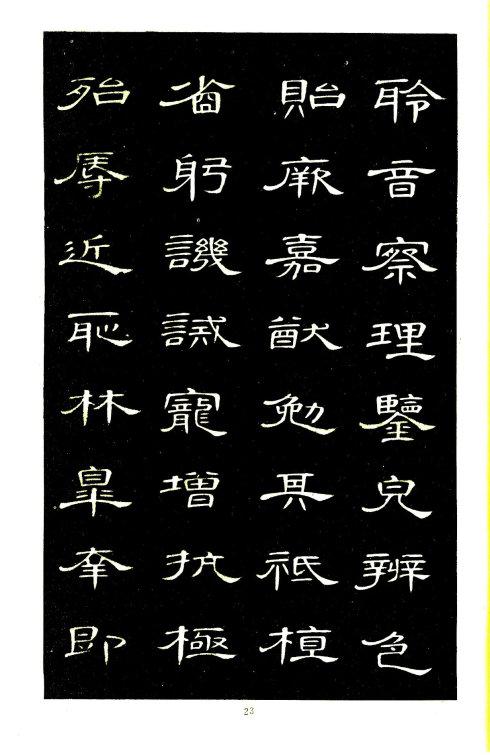 聆音察理鑒皃辨色
貽厥嘉猷勉其祗植
省躬譏誡寵增抗極
殆辱近恥林皐幸即
23